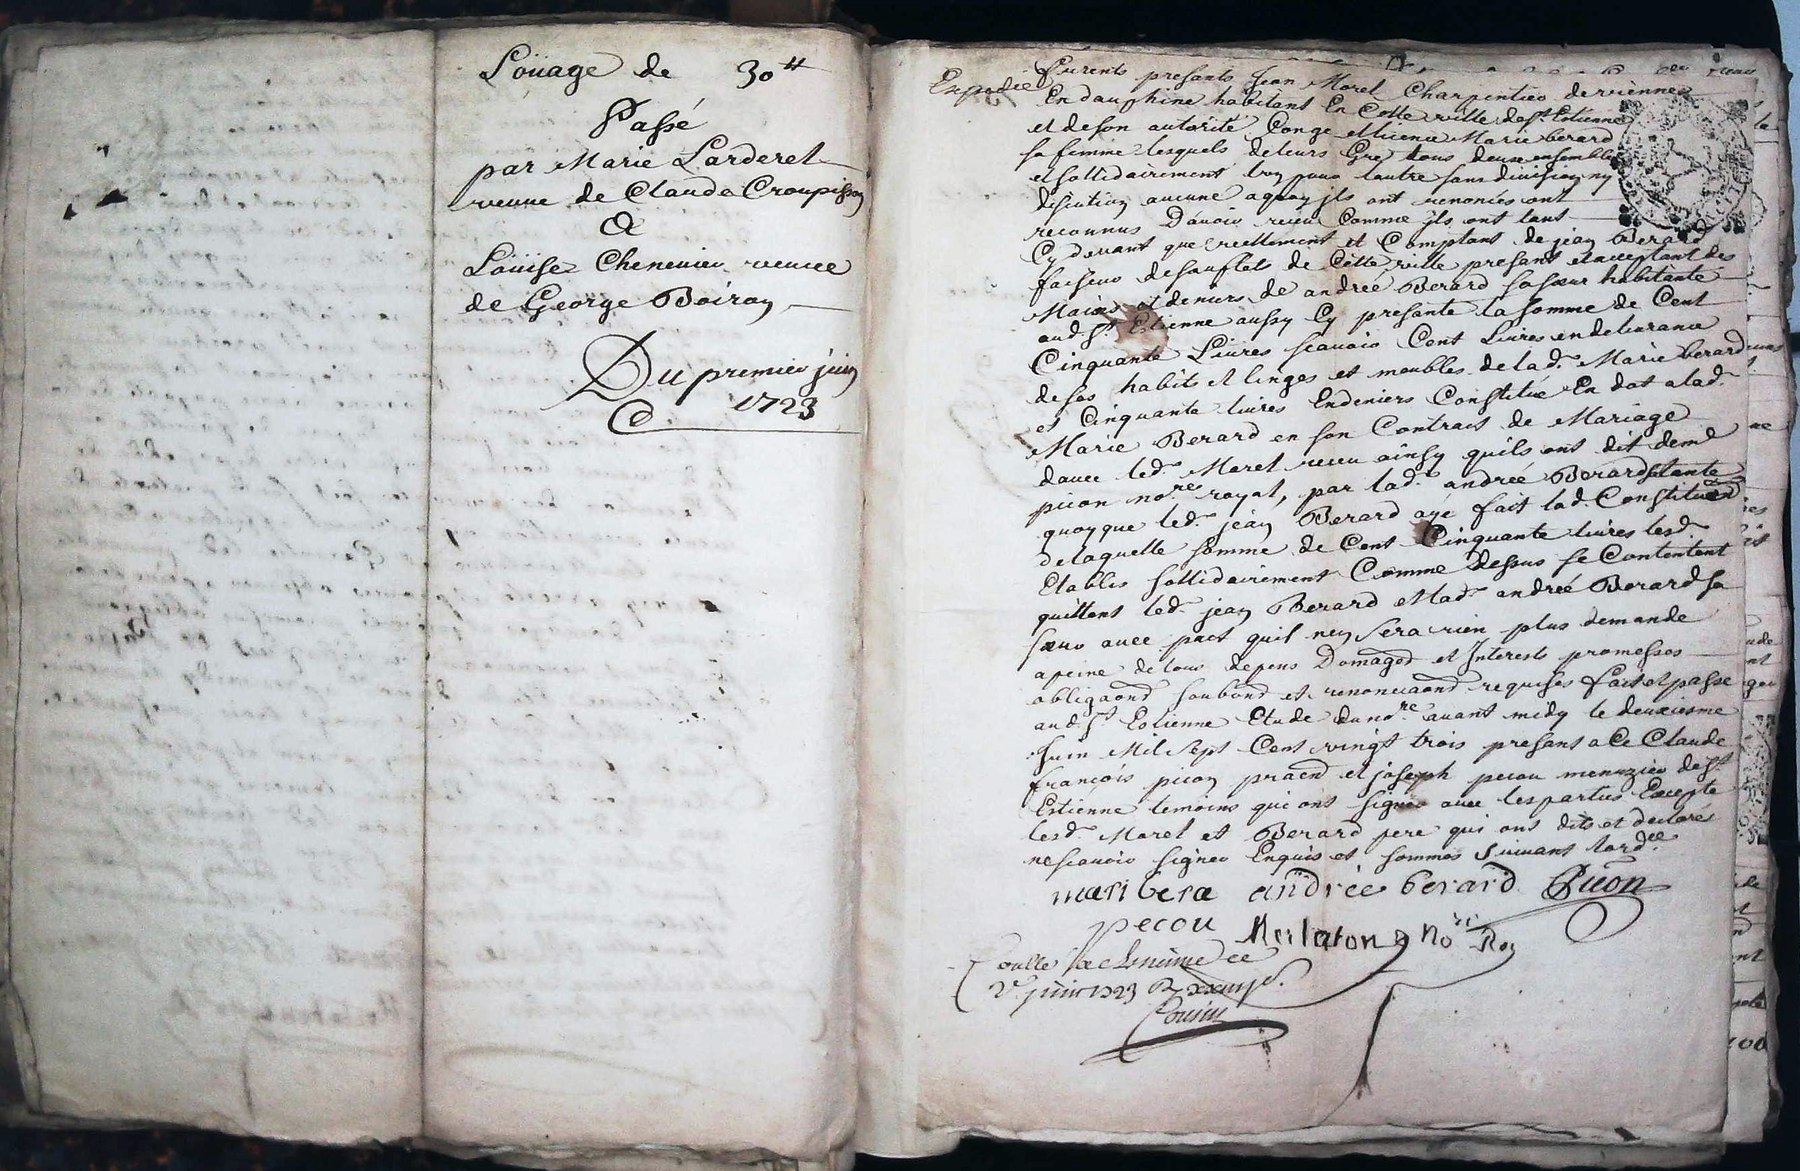 Loüage de 30lt
Passé
par Marie Larderet
veuve de Claude Croupisson
&
Loüise Chenevier veuve
de George Boiron
Du premier juin
1723
Expedié
Furents presants Jean Morel Charpentier de vienne
En dauphiné habitant En Cette ville de St Estienne
et de son autorité Conge et licence Marie berard
sa femme lesquels de leurs Gre tous deux ensemble
et sollidairement lun pour lautre sans division ny
discution aucune a quoy ils ont renoncés ont
reconnus D'avoir receu Comme jls ont tant
Cy devant que reellement et Comptant de jean Berard
faiseur de souflets de Cette ville presant et acceptant des
Mains et deniers de andrée Berard sa sœur habitante
aud. St Etienne aussy Cy presante la somme de Cent
Cinquante Livres scavoir Cent Livres en delivrance
de ses habits et linges et meubles de lad. Marie berard
et Cinquante livres En deniers Constitué En dot a lad.
Marie Berard en son Contrat de Mariage
davec led. Morel receu ainsy quils ont dit de me
picon nore royal, par lad. andrée Berard
quoyque led. jean Berard aye fait lad. Constituon
de laquelle somme de Cent Cinquante livres lesd.
Etablis sollidairement Comme dessus se Contentent
quittent led. jean Berard et lad. andrée Berard sa
sœur avec pact quil ney sera rien plus demande
a peine de tous depens Domages et Interests promesses
obligaons soubons et renonciaons requises fait et passe
aud. St Estienne Etude du nore avant midy le deuxiesme
Juin Mil sept Cent vingt trois presans a Ce Claude
françois picon praen et joseph pecou menuzier de St
Estienne temoins qui ont signés avec les parties Excepté
lesd. Morel et Berard pere qui ont dits et declarés
ne scavoir signer Enquis et sommés suivant lordce
mari bera andrée berard Picon
pecou Merlaton Nore Roy
2e juin 1723
Cousin